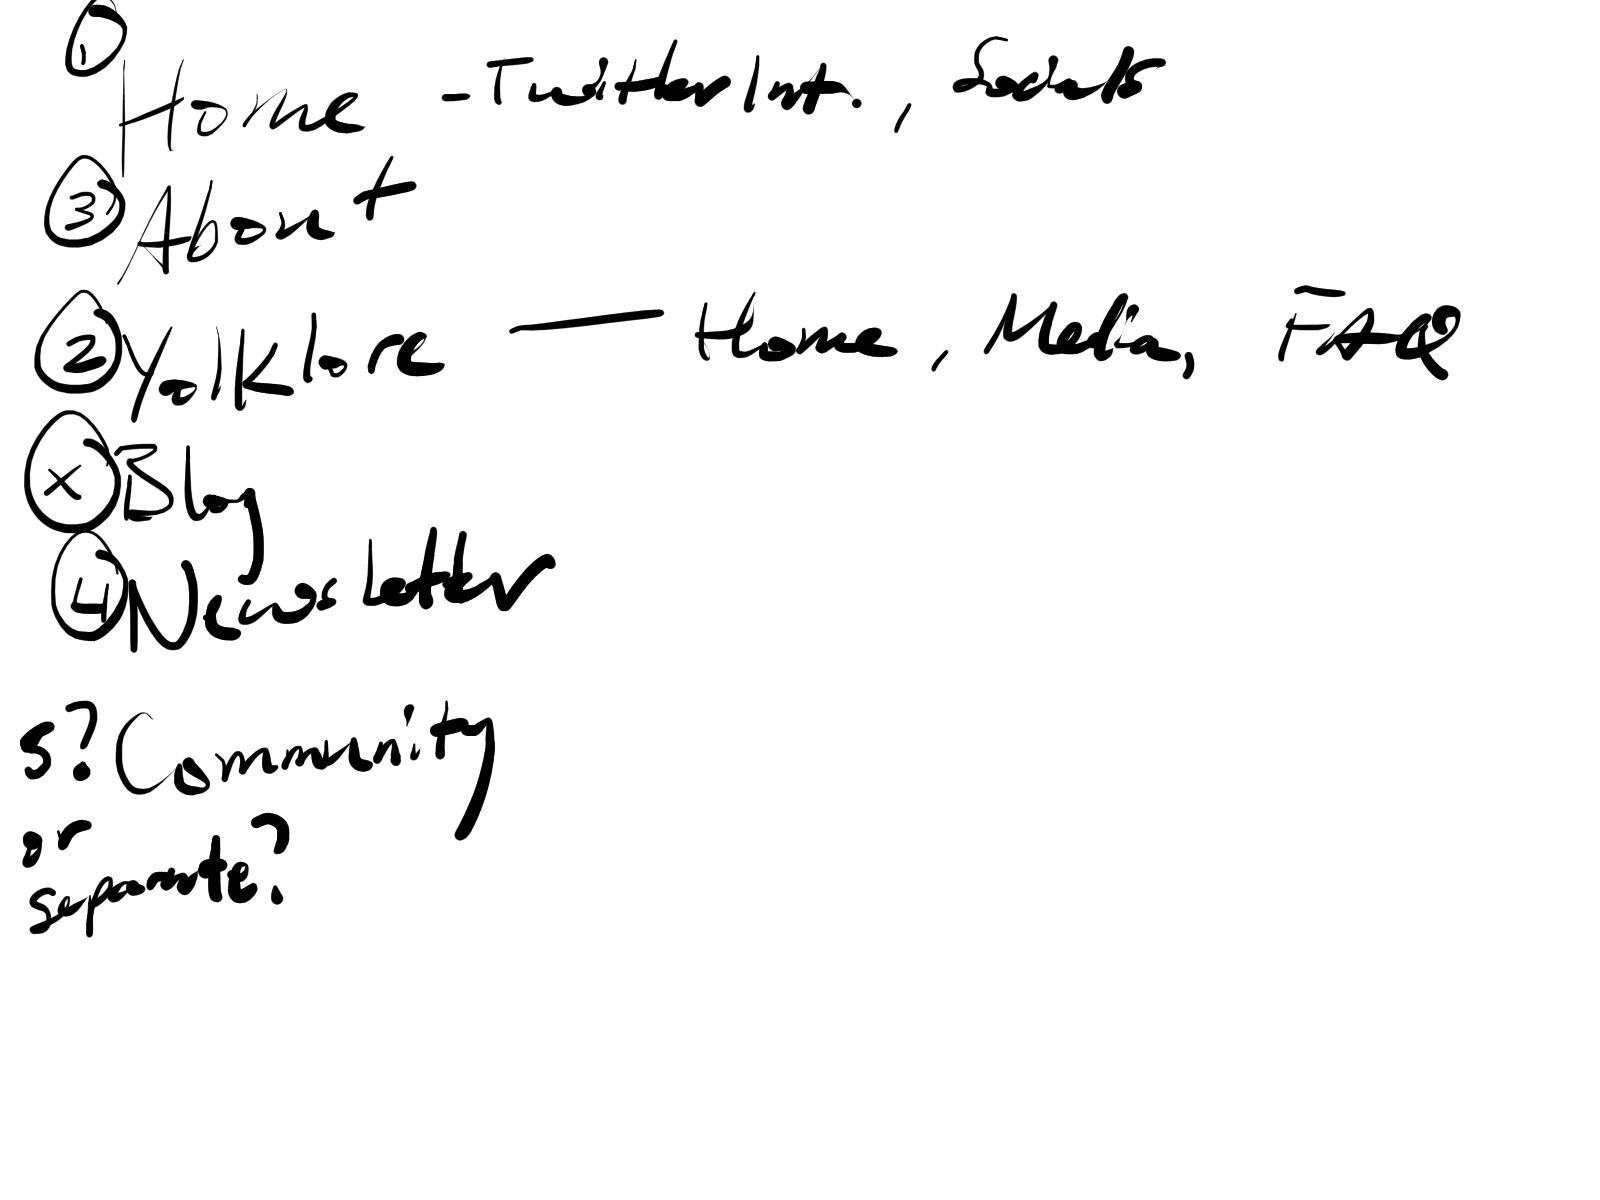 1 Home - Twitter Int., Socials
3 About
2 Yolklore — Home, Media, FAQ
X Blog
4 Newsletter
5? Community
or
separate?